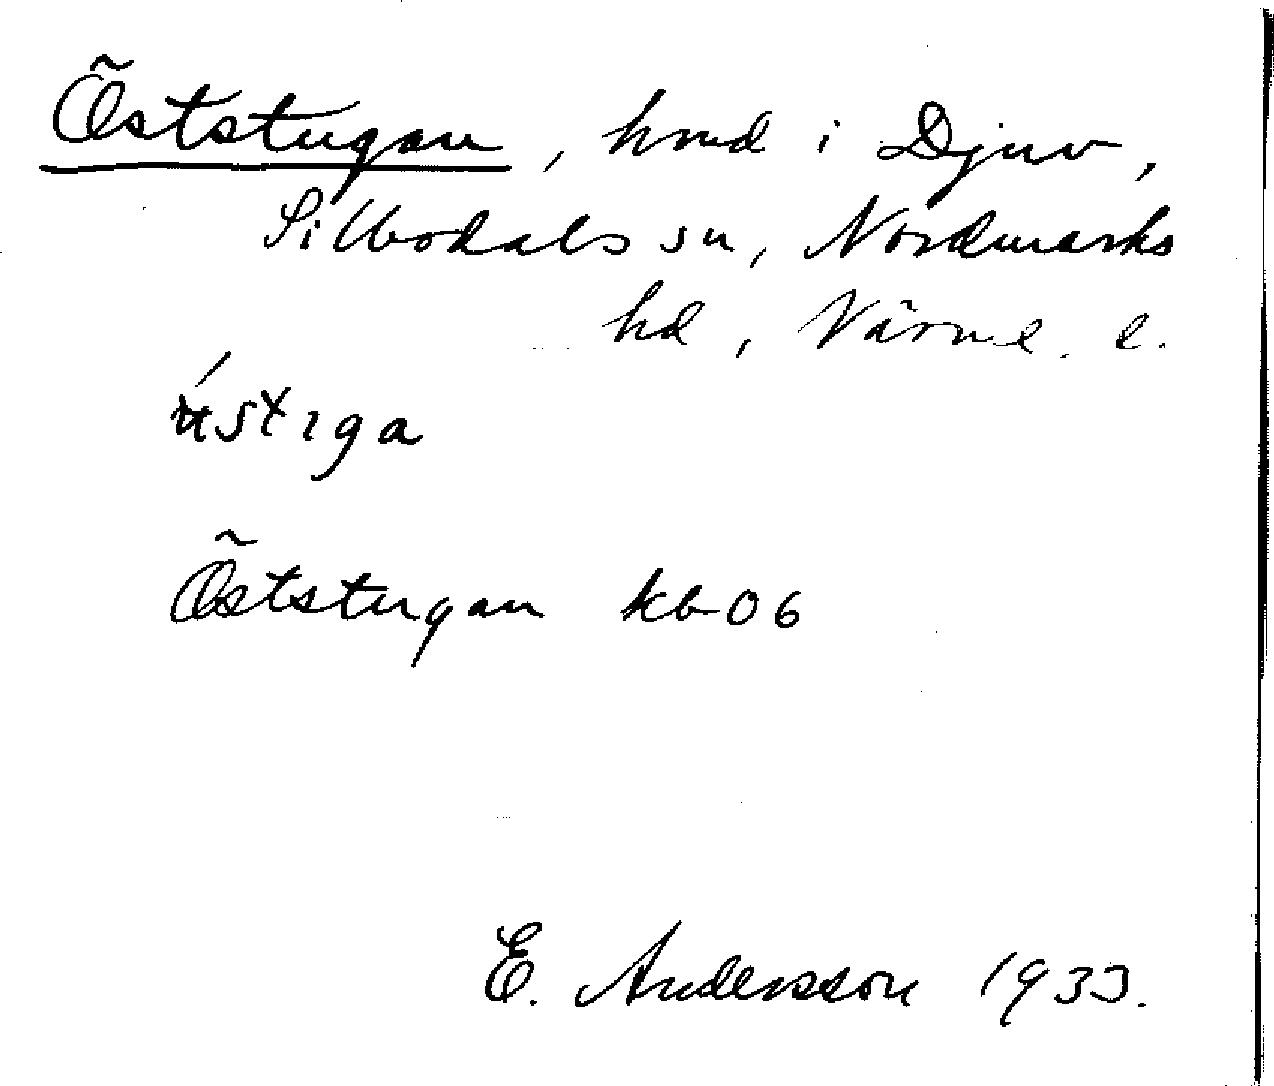 Öststugan, hmd i Djuv,
Sillbodals sn, Nordmarks
hd, Värml. l.
Öststugan kb 06
E. Andersson 1933.